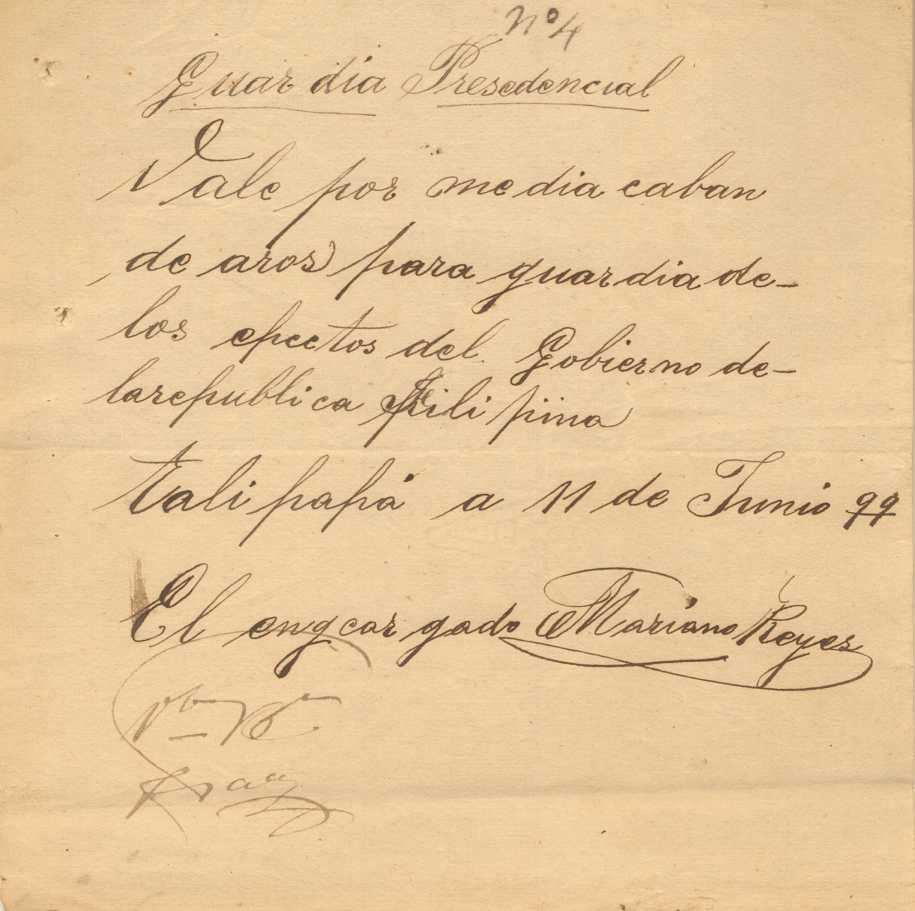 Nº 4
Guardia Presedencial
Vale por media caban
de aros para guardia de-
los efectos del Gobierno de-
larepublica Filipina
Talipapá a 11 de Junio 99
El engcargado Mariano Reyes
Vto Bno